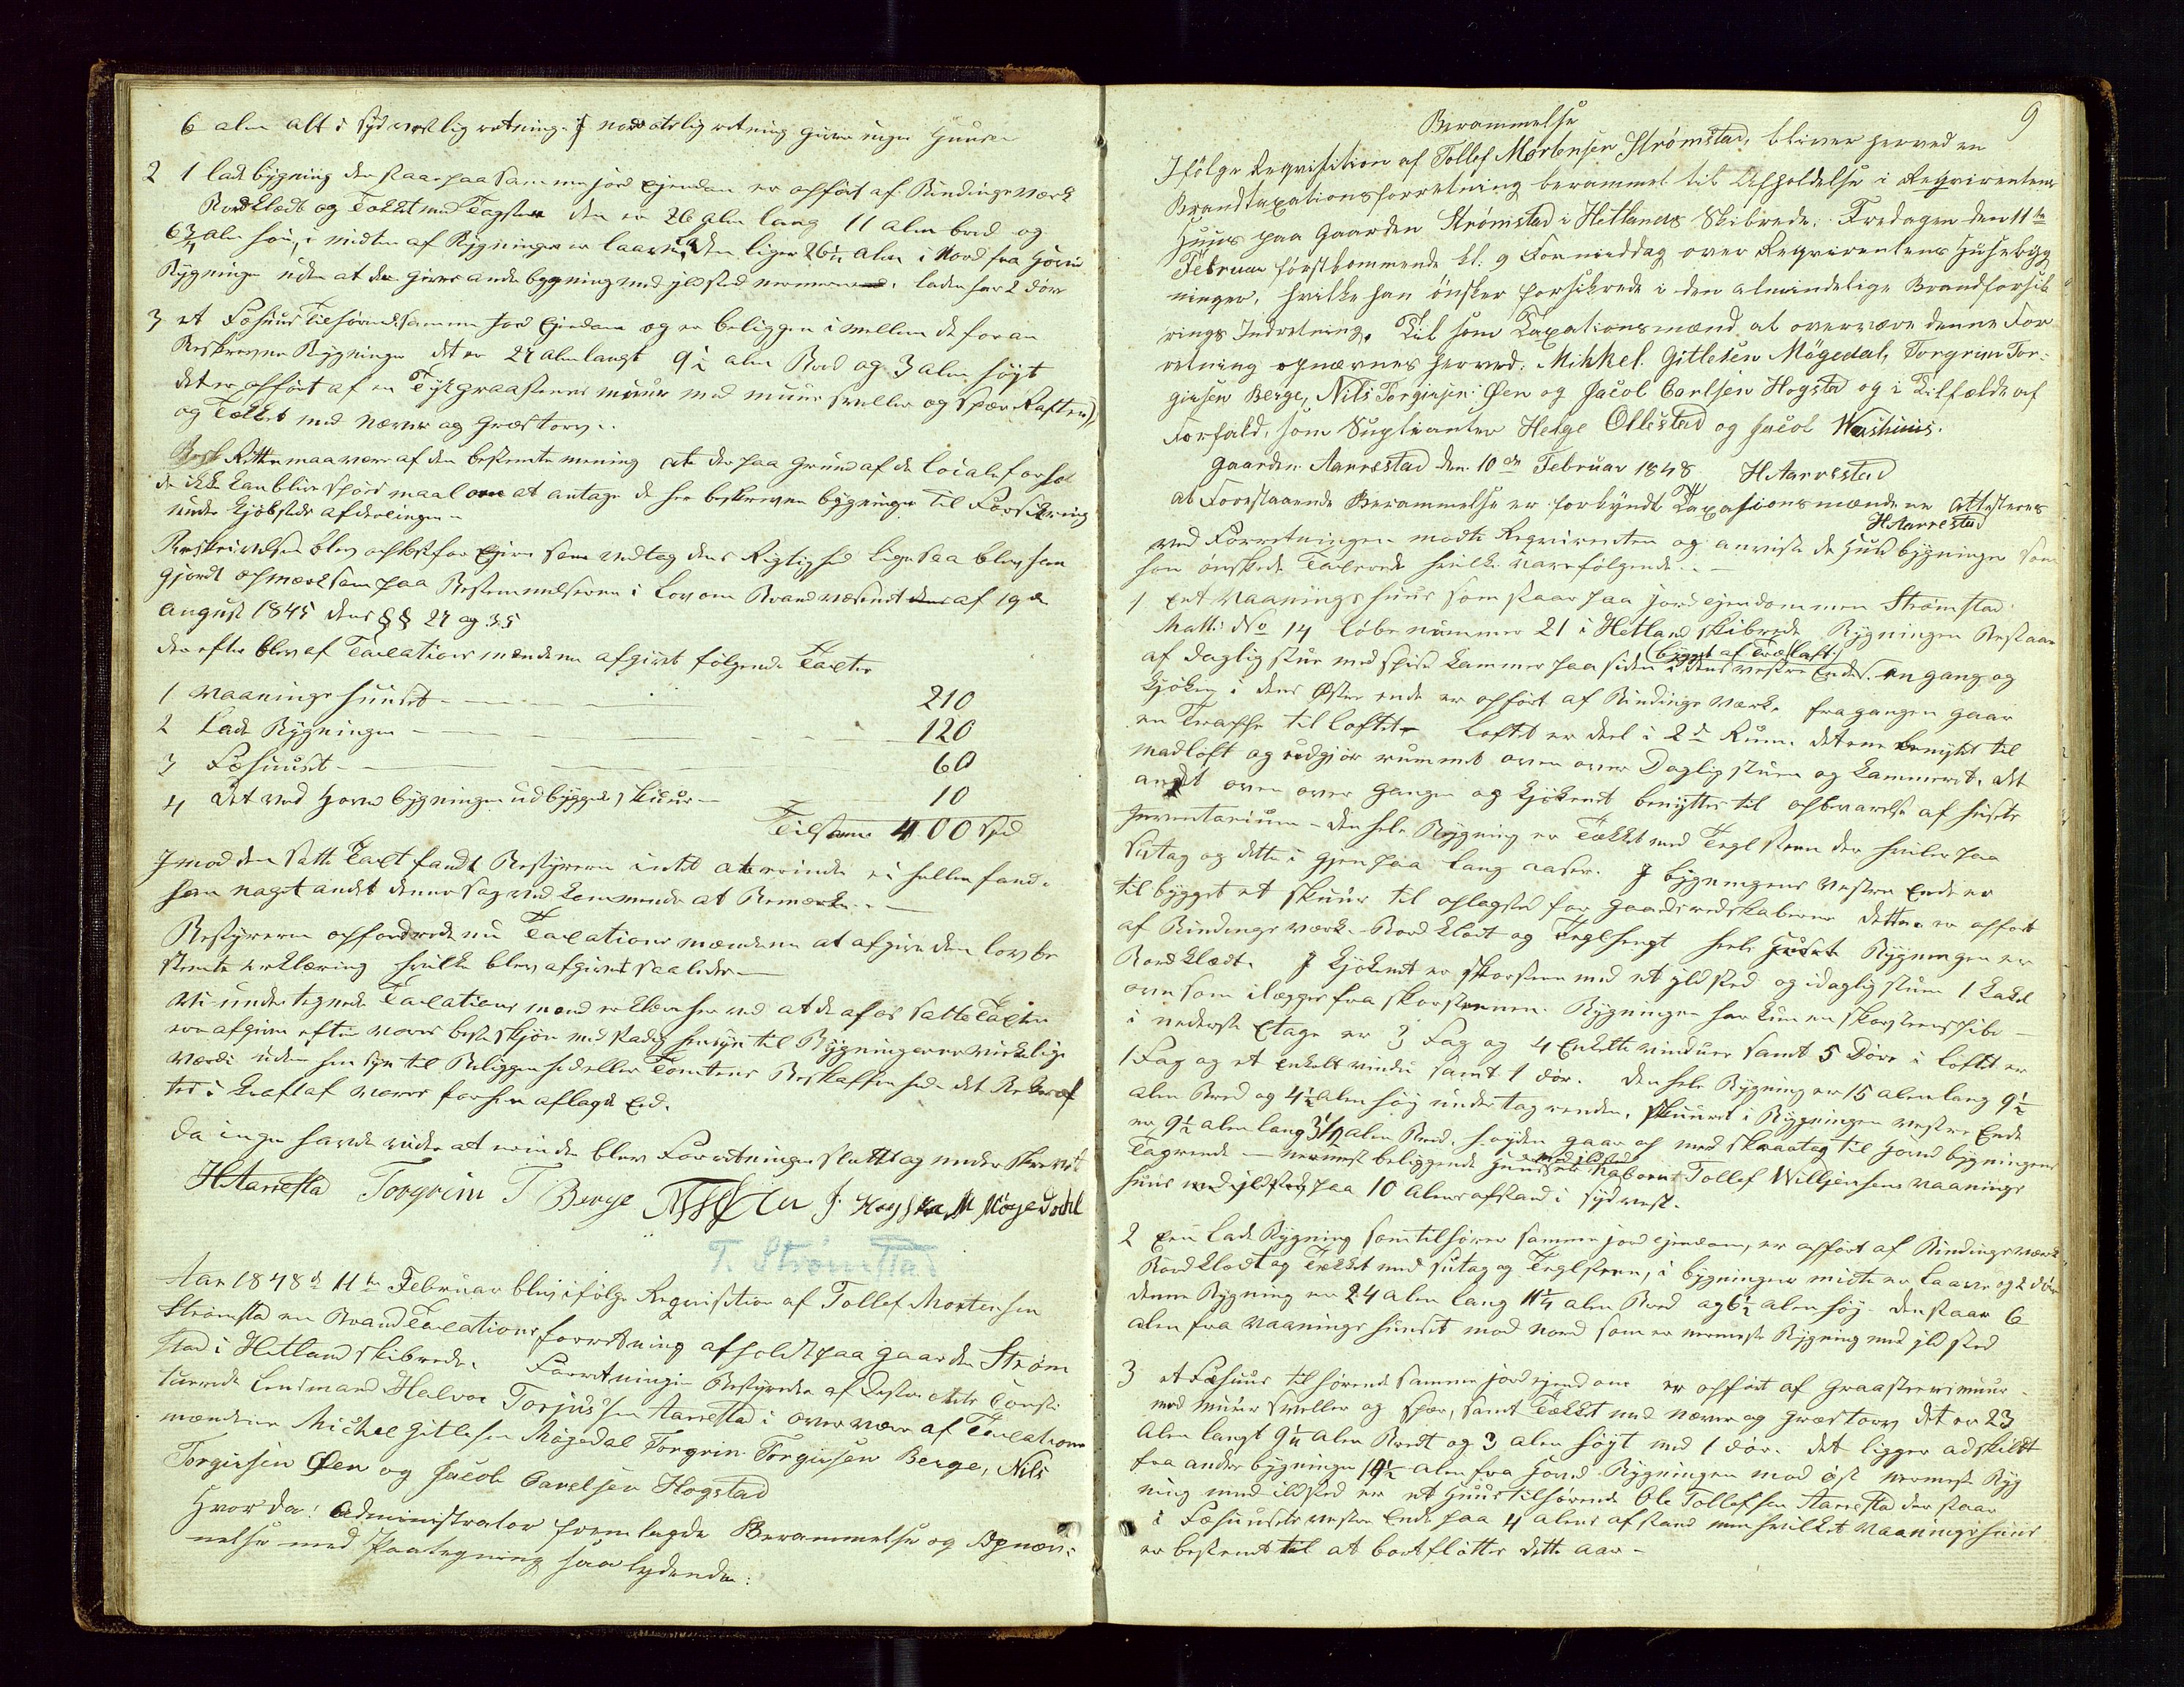 6 alen alt i sydvestlig retning. I nordostlig retning gives ingen Huuse
2 1 ladebygning der staar paa samme jord ejendom er opført af Bindingsværk
Bordklædt og Tækket med Tagsten den er 26 alen lang 11 alen bred og
6¾ alen høi, i midten af Bygningen er laaven, den liger 26½ alen i Nord fra Hoved
Bygningen uden at der gives andre bygning med ildsted nærmere. laden har 2 dør
3 et Fæhuus Tilhørende samme Jord Ejendom og er beliggen imellem de foran
Beskrevne Bygninger det er 27 alen langt 9½ alen Bred og 3 alen høyt
det er opført af en Tyk graasteens muur med muur sveller og Spær Rafter,
og Tækket med Næver og Græstorv..
Besk Rettn maa være af den bestemte mening at der paa Grund af de locale forhol
de ikke kan blive spørsmaal om at antage de her beskrevne bygninger til Forsikring
under Kjøbsteds afdelingen
Beskrivelsen blev oplæst for Ejeren som vedtog dens Rigtighed ligesaa blev han
gjordt opmærksom paa Bestemmelserne i Lov om Brandvæsenet af 19de
August 1845 dens §§ 27 og 35
derefter blev af Taxationsmændene afgivet følgende Taxter
1 Vaaningshuuset 210
2 Lade Bygningen 120
3 Fæhuuset 60
4 det ved Hovedbygningen udbyggede skuur 10
Tilsamme 400 Spd
Imod den satte Taxt fandt Bestyreren intet at erindre ei heller fandt
han noget andet denne sag vedkommende at Bemærke..
Bestyreren opfordrede nu Taxationsmændene at afgive den lovbe
stemte erklæring hvilken blev afgivet saaledes
Vi undertegnede Taxations mænd erklærer herved at de af os satte Taxter
ere afgivne efter vores beste skjøn med stadig hensyn til Bygningernes virkelige
Værdi uden hensyn til Beliggenhed eller Tomtens Beskaffenhed. det Bekræf
tes i kraft af vores forhen aflagte Eed.
Da ingen havde videre at erindre blev Forretningen sluttet og underskrevet
HAarrestad Torgrim T Berge NTSØen J. Hogstad M Møgedahl
T. Strømstad
Aar 1848 d 11te Februar blev ifølge Reqvisition af Tollef Mortensen
Strømstad en Brand Taxationsforretning afholdt paa gaarden Strøm
stad i Hetland skibrede. Forretningen Bestyredes af Constitu
tuerede Lendsmand Halvor Torjussen Aarrestad i overvær af Taxations
mændene Michel Gitlesen Møgedal Torgrim Torgiersen Berge, Nils
Torgiersen Øen og Jacob Carelsen Hogstad
Hvor da! Administrator fremlagde Berammelse og Opnæv-
nelse med Paategning saa lydende:
9
Berammelse
Ifølge Reqvisition af Tollef Mortensen Strømstad, bliver herved en
Brandtaxationsforretning berammet til Afholdelse i Reqvirentens
Huus paa Gaarden Strømstad i Hetlands Skibrede. Fredagen den 11te
Februar førstkommende kl. 9 Formiddag over Reqvirentens Huusebyg
ninger, hvilke han ønsker forsikrede i den almindelige Brandforsik
rings Indretning. Til som Taxationsmænd at overvære denne For
retning opnævnes herved: Mikkel Gitlesen Møgedal, Torgrim Tor-
giersen Berge, Nils Torgiersen Øen og Jacob Carlsen Hogstad og i Tilfælde af
Forfald, som Suplianter Helge Ollestad og Jacob Washuus.
Gaarden Aarrestad den 10de Februar 1848 HAarrestad
At Forestaaende Berammelse er forkyndt Taxationsmændene attesteres
HAarrestad
ved Forretningen mødte Reqvirenten og anviste de Huusbygninger som
han ønskede Taxerede hvilke vare følgende..
1 Eet Vaaningshuus som staar paa jordejendommen Strømstad
Matr: No 14 løbenummer 21 i Hetland skibrede Bygningen Bestaar
bygget af Træ laft
af daglig stue med spise kammer paa siden i dens vestre Ende. en gang og
kjøken i dens Østre ende er opført af Bindings værk. fra gangen gaar
en Trappe til loftet loftet er deel i 2de Rum. det ene benyttet til
madloft og udgjør rummet oven over Dagligstuen og kammeret. det
andet oven over Gangen og kjøkenet benyttes til opbevaring af huusets
Inventarium den hele Bygning er Tækket med Teglsteen der hviler paa
Sutag og dette igjen paa lang aaser. I bygningens Vestre Ende er
tilbygget et skuur til oplagsted for gaardsredskaberne dette er opført
af Bindings værk Bord klædt og Teglhængt hele Bygningen er
Bordklædt. I kjøkenet er skorsteen med et ildsted og i dagligstuen 1 kakel
ovn som ilægges fra skorstenen. Bygningen har kun en skorsteenspibe
i nederste Etage er 3 Fag og 4 Enkelte vinduer samt 5 Døre i loftet er
1 Fag og et enkelt vindu samt 1 dør. den hele Bygning er 15 alen lang 9½
alen Bred og 4½ alen høy under tag renden, skuuret i Bygningen vestre Ende
er 9½ alen lang 3½ alen Bred, høyden gaar op med skraatag til Hoved bygningens
Tagrende nærmest beliggende Huus er Naboens Tollef Willjemsens vaanings
huus med ildsted paa 10 alens afstand i sydvest.
2 Een lade Bygning som tilhører samme jord ejendom, er opført af Bindings værk
Bordklædt og Tækket med sutag og Teglsteen, i bygningens midte er laave og 2 dør
denne Bygning er 24 alen lang 11¼ alen Bred og 6½ alen høy. den staar 6
alen fra Vaaningshuuset mod nord som er nærmeste Bygning med ildsted
3 et Fæhuus tilhørende samme jordejendom er opført af Graasteensmuur
med muur sveller og spær, samt Tækket med næver og græstorv det er 23
Alen langt 9¼ Alen Bredt og 3 alen høyt med 1 dør. det ligger adskildt
fra andre bygninger 10½ alen fra Hoved Bygningen mod øst nærmeste Byg
ning med ildsted er et Huus tilhørende Ole Tollefsen Aarrestad der staar
i Fæhuusets vestre Ende paa 4 alens afstand men hvilket Vaaningshuus
er bestemt til at bortfløttes dette aar